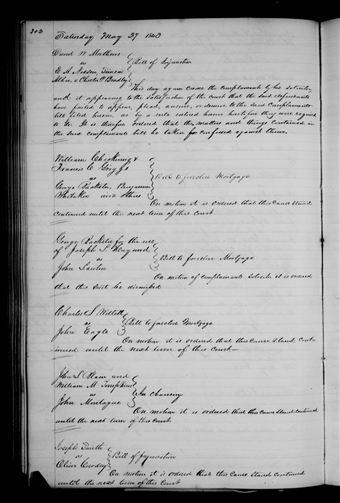 Saturday May 27 1843
David W Mathews
vs
Bill of Injunction
This day again came the Complainants by his Solicitor
and it appearing to the Satisfaction of the Court that the said defendants
have failed to appear, plead, answer, or demur to the said Complainants
bill filed herein, as by a rule entered herein heretofore they were required
to do. It is therefore ordered that the matters and things contained in
the said complainants bill be taken for confessed against them.
William
Francis C Griggs
vs
Bill to foreclose Mortgage
George Benjamin
Whitaker and others
On motion it is ordered that this Cause Stand
continued until the next term of this Court
George for the use
of Joseph S
vs
Bill to foreclose Mortgage
John
On motion of Complainants Solicitor it is ordered
that this Suit be dismissed
Charles S
vs
Bill to foreclose Mortgage
John Eagle
On motion it is ordered that this Cause Stand Cont-
inued until the next term of this Court
John S and
William M Tompkins
vs
In chancery
John Montague
On motion it is ordered that this Cause Stand continued
until the next term of this Court
Joseph
vs
Bill of Injunction
On motion it is ordered that this Cause Stand Continued
until the next term of this Court